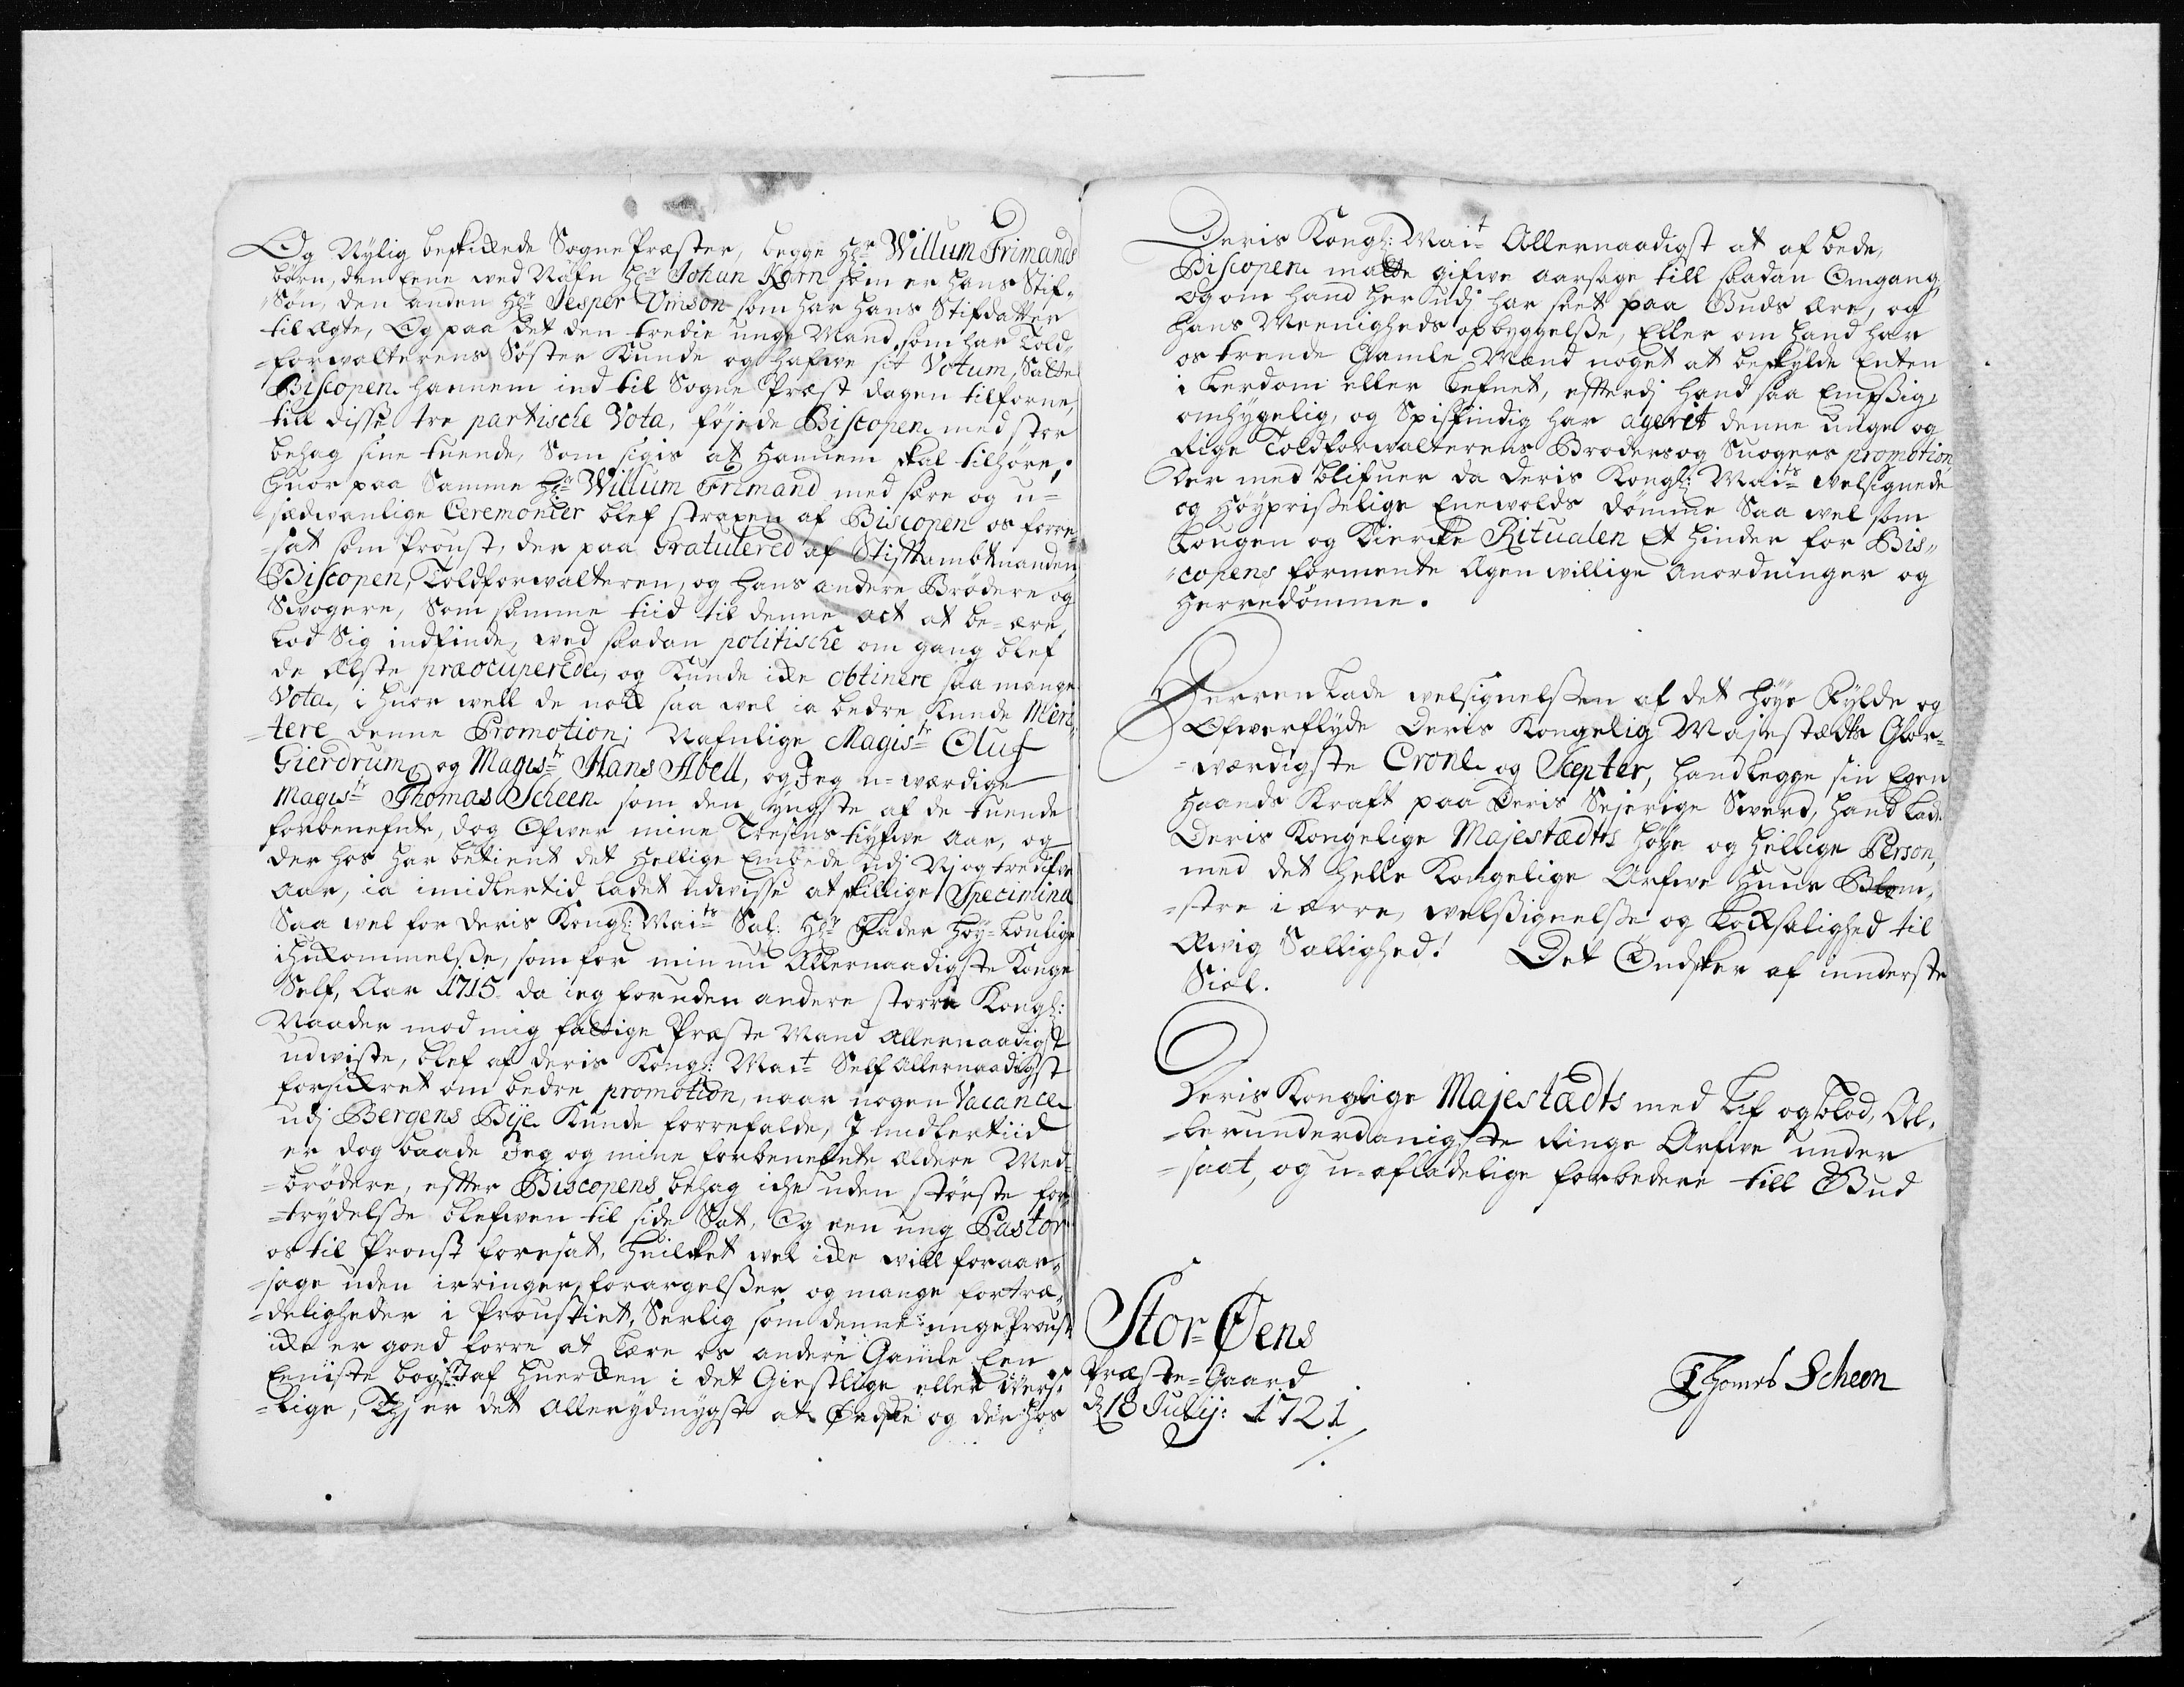 Og Nylig beskikkede Sogne Præster, begge Hr Willum Frimands
børn, den Eene ved Nafn Hr Johan Korn som er hans Stif-
Søn, den anden Hr Jesper Urnson som har hans Stifdatter
til ægte, Og paa det den tredie unge Mand, som har Told-
-forvalterens Søster Kunde og hafve sit Votum, Satte
Biscopen hannem ind til Sogne Præst dagen tilforne,
till disse tre partische Vota, føjede Biscopen med stor
behag sine tuende, Som sigis at hannem skal tilhøre;
Huor paa Samme Hr Willum Frimand med sære og u-
sædvanlige Ceremonier blef straxen af Biscopen os forre-
-sat som Proust, der paa Gratulered af Stiftambtmanden,
Biscopen, Toldforvalteren, og hans andere Brødere og
Svogere, Som samme tiid til denne act at be-ære,
Lod Sig indfinde, ved saadan politische om gang blef
de Elste præocuperede, og Kunde ikke obtinere saa mange
Vota, i huor vell de nok saa vel ia bedre kunde Meri-
-tere denne Promotion; Nafnlige Magistr Oluf
Gierdrum, og Magistr Hans Abell, og Jeg u-værdige
Magistr Thomas Scheen som den yngste af de tuende
forbenefnte, dog Ofver mine Tresins tyfve Aar, og
der hos har betient det Hellige Embede udj Nj og tredifve
Aar, ia imidlertid ladet udvisse atskillige Specimina
Saa vel for Deris Kongl: Maits Sal: Hr Fader Høy-Loulige
ihukommelsse, som for min nu Allernaadigste Konge
Self, Aar 1715 da ieg foruden andere storre Kongl:
Naader mod mig fattige Præste Mand Allernaadigst
udviste, blef af Deris Kongl: Mait Self Allernaadigst
forsikkret om bedre promotion, naar nogen Vacance
udj Bergens Bije Kunde forrefalde, Imidlertiid
er dog baade Jeg og mine forbenefnte Eldere Med-
-brødere, efter Biscopens behag iche uden største for-
-trydelsse blefven til side Sat, Og een ung Pastor
os til Proust foresat, Huilket vel ikke vill foraar-
-sage uden irringer, forargelsser og mange fortræ-
-deligheder i Proustiet, Serlig som denne unge Proust
ikke er goed forre at lære os andere Gamle Een
Eeniste bogst: af huercken i det Giestlige eller Vers-
-lige, Thj er det Allerydmygst at Øndske og der hos
Deris Kongl: Mait Allernaadigst at af bede,
Biscopen matte gifve aarsage till saadan Omgang,
Og om hand her udj har seet paa Guds ære, og
hans Meenigheds opbyggelsse, Eller om hand har
os trende Gamle Mænd noget at beskylde Enten
i Lerdom eller Lefnet, efterdj hand saa Emssig,
omhygelig, og Spisfindig har ageret denne unge og
Rige Toldforvalterens Broders og Suogers promotion,
Her med blifuer da Deris Kongl: Maits velsignede
og Høyprisselige Enevolds dømme Saa vel som
Lougen og Kircke Ritualen Et hinder for Bis-
-copens formente Egen villige Anordninger og
Herredømme.
Herren Lade velsignelssen af det høye Kylde og
Ofverflyde Deris Kongelig Majestædts Glor-
-værdigste Crone og Scepter, Hand Legge sin Egen
Haands Kraft paa Deris Sejerige Sverd, Hand Lade
Deris Kongelige Majestædtts høje og hellige Person,
med det helle Kongelige Arfve Huus Blom-
-stre i ære, velssignelsse og Lycksalighed til
Ævig Sallighed! Det Ønsker af innderste
Siæl.
Deris Konglige Majestædts med Lif og blod, Al-
-lerunderdanigste Ringe Arfve under
-saat, og u-afladelige forbedere till Gud
Stor-Øens
Præste-Gaard
d 18 Julij: 1721
Thomas Scheen